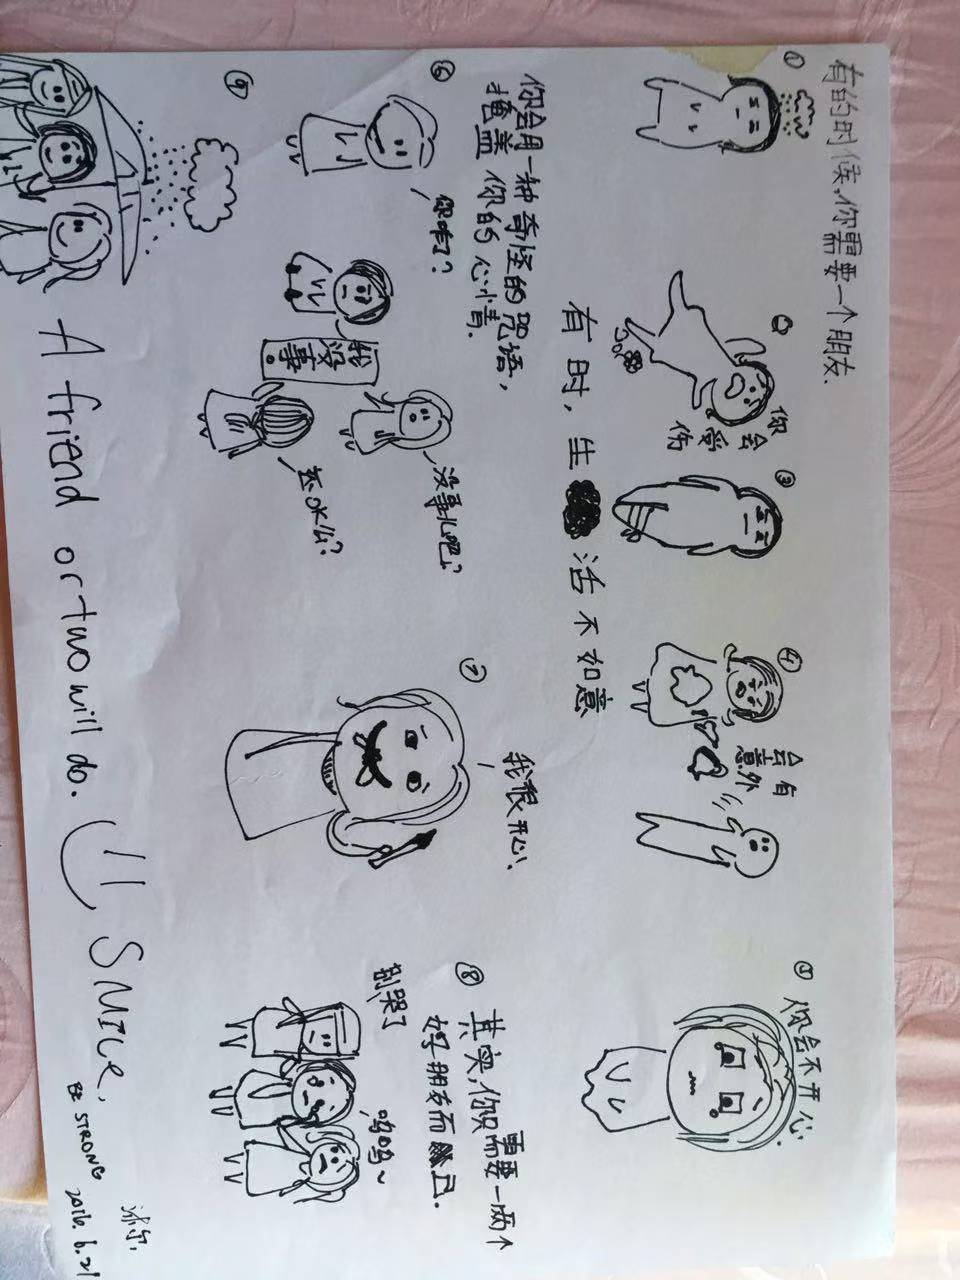 有的时候,你需要一个朋友.
①
②
你会受伤
③
④
会有意外
⑤
你会不开心.
有时,生活不如意
你会用一种奇怪的咒语,
掩盖你的心情.
⑥
你咋了?
没事儿吧?
还OK么?
我没事。
⑦
我很开心!
⑧
其实,你只需要一两个
好朋友而已.
别哭了
呜呜~
⑨
A friend or two will do.
SMILE,
BE STRONG
2016.6.21